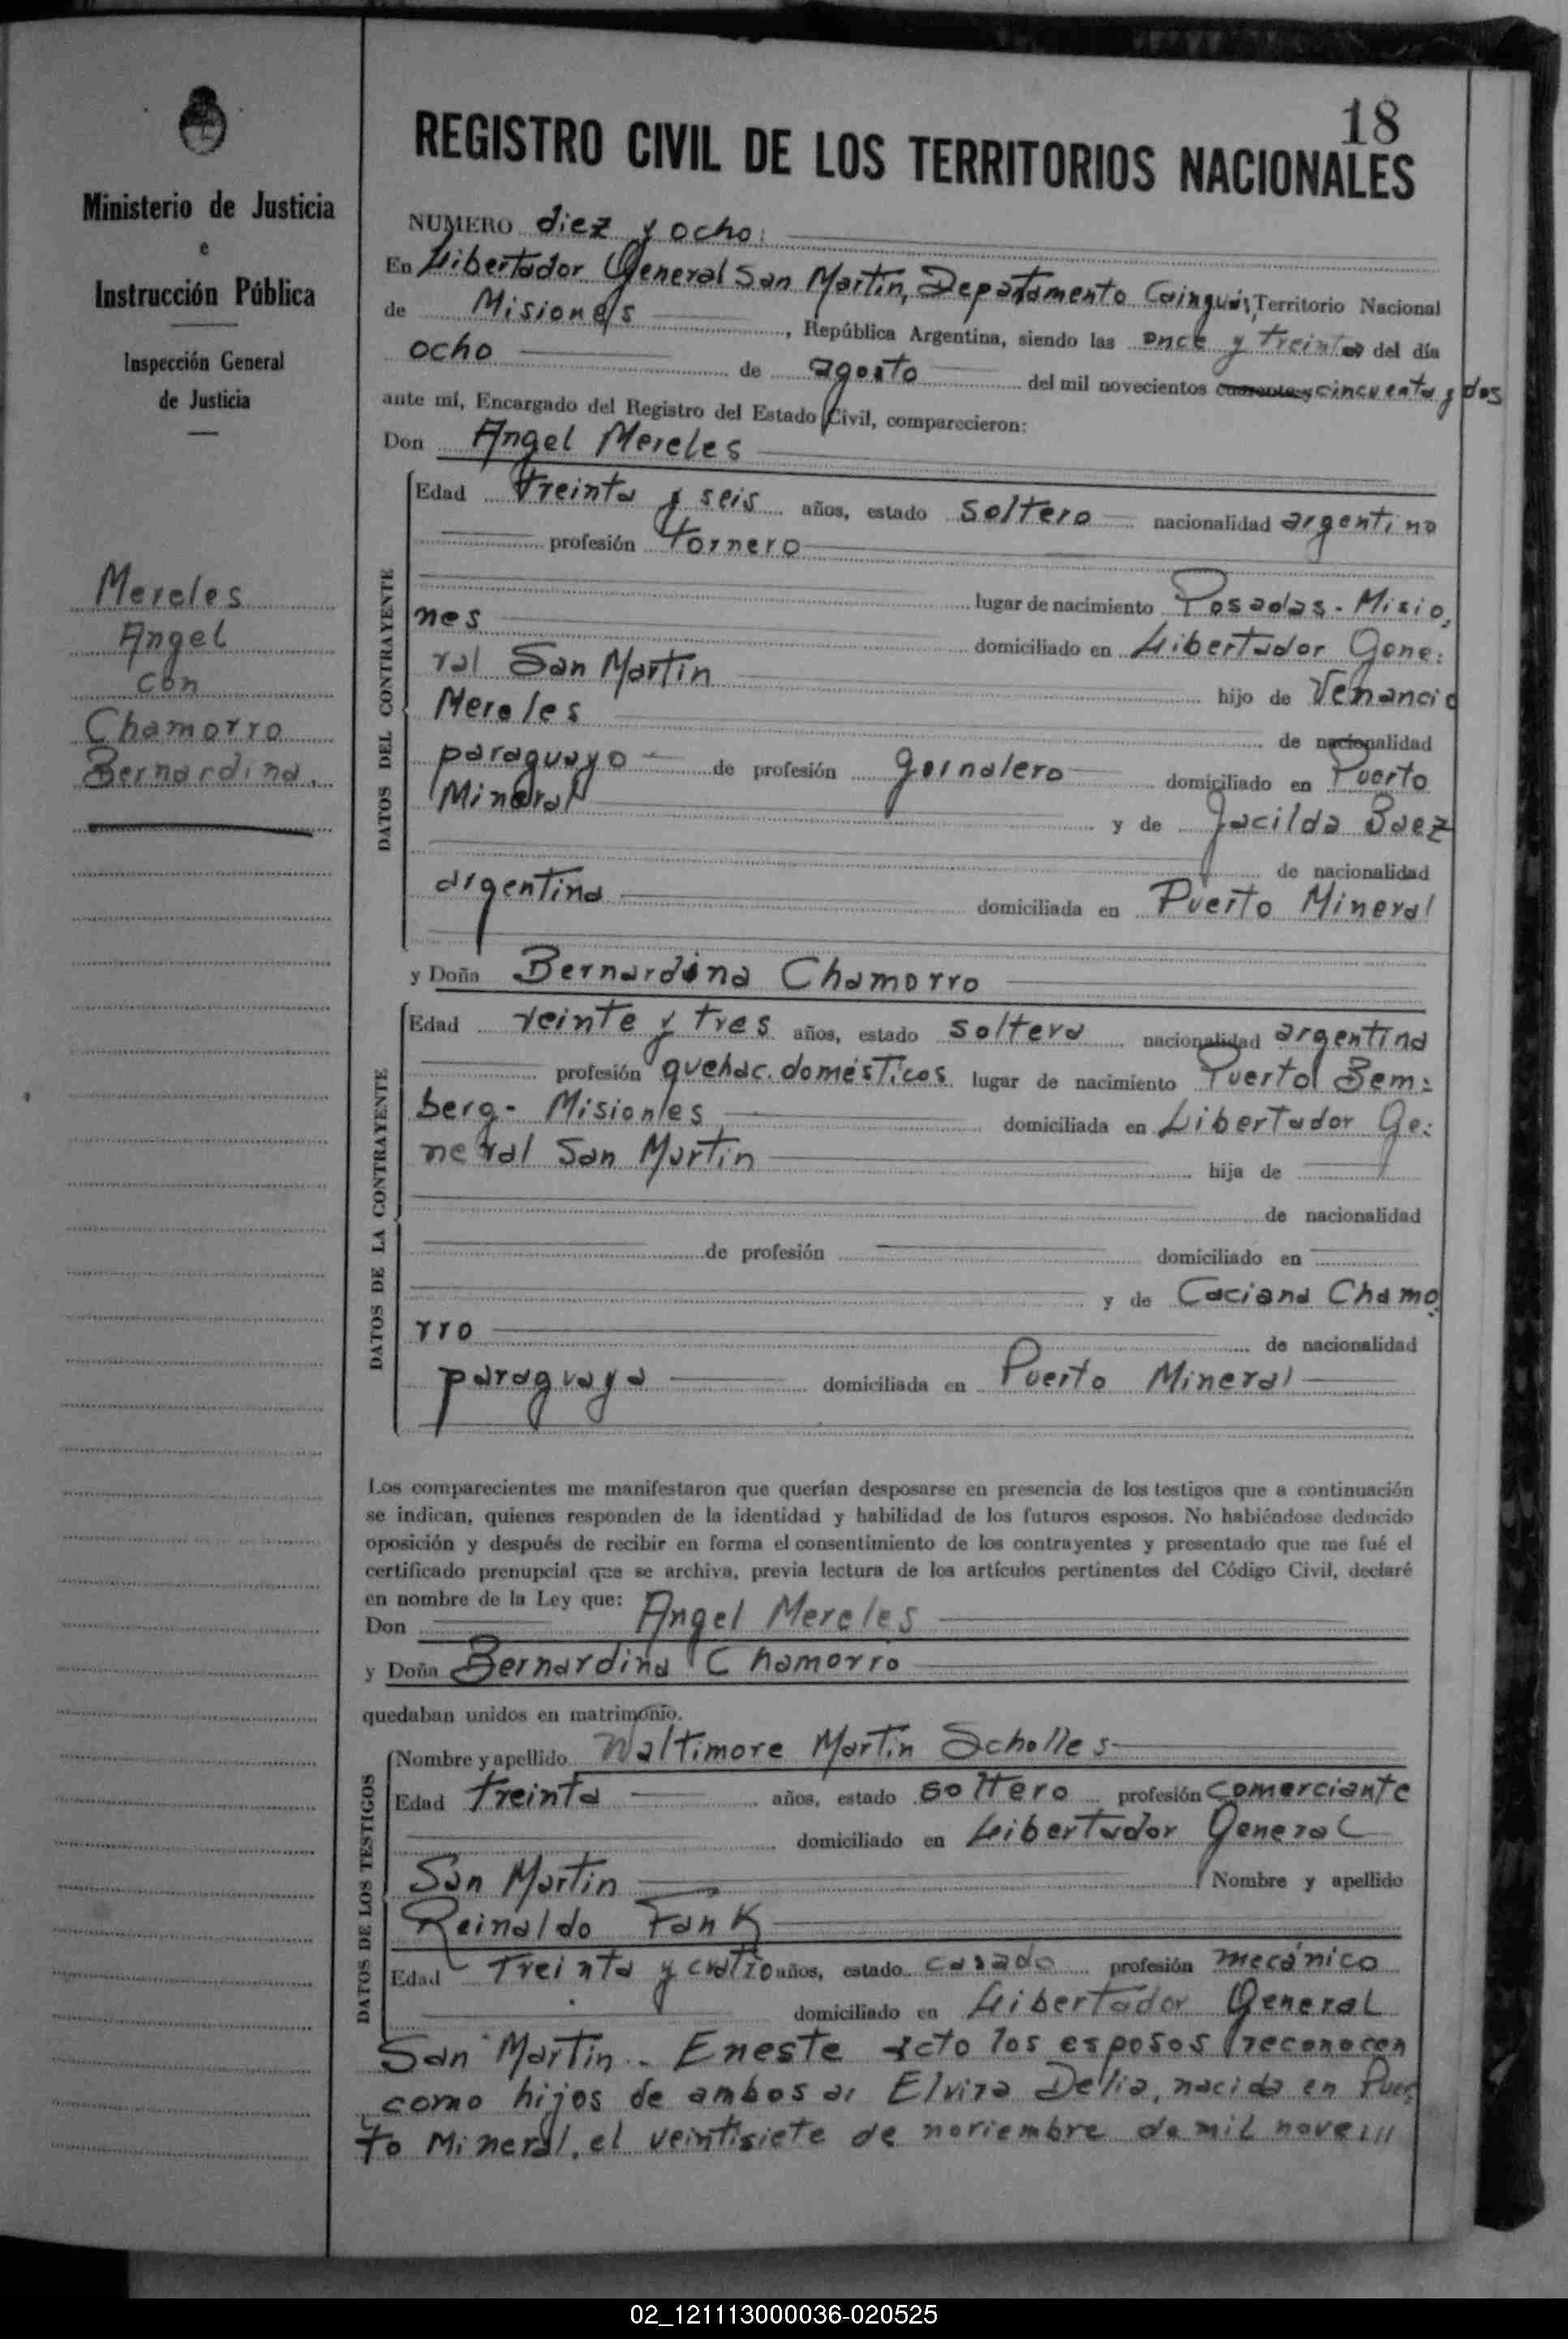 18
Ministerio de Justicia
e
Instrucción Pública
Inspección General
de Justicia
Mereles
Angel
con
Chamorro
Bernardina.
REGISTRO CIVIL DE LOS TERRITORIOS NACIONALES
NUMERO diez y ocho:
En Libertador General San Martín, Departamento Cainguás, Territorio Nacional
de Misiones, República Argentina, siendo las once y treinta del día
ocho de agosto del mil novecientos cuarenta y cincuenta y dos
ante mí, Encargado del Registro del Estado Civil, comparecieron:
Don Angel Mereles
DATOS DEL CONTRAYENTE
Edad treinta y seis años, estado soltero nacionalidad argentino
profesión tornero
lugar de nacimiento Posadas - Misio,
nes domiciliado en Libertador Gene:
ral San Martín hijo de Venancio
Mereles de nacionalidad
paraguayo de profesión jornalero domiciliado en Puerto
Mineral y de Jacilda Baez
de nacionalidad
argentina domiciliada en Puerto Mineral
y Doña Bernardina Chamorro
DATOS DE LA CONTRAYENTE
Edad veinte y tres años, estado soltera nacionalidad argentina
profesión quehac. domésticos lugar de nacimiento Puerto Bem:
berg - Misiones domiciliada en Libertador Ge:
neral San Martín hija de
de nacionalidad
de profesión domiciliado en
y de Caciana Chamo
rro de nacionalidad
paraguaya domiciliada en Puerto Mineral
Los comparecientes me manifestaron que querían desposarse en presencia de los testigos que a continuación
se indican, quienes responden de la identidad y habilidad de los futuros esposos. No habiéndose deducido
oposición y después de recibir en forma el consentimiento de los contrayentes y presentado que me fué el
certificado prenupcial que se archiva, previa lectura de los artículos pertinentes del Código Civil, declaré
en nombre de la Ley que:
Don Angel Mereles
y Doña Bernardina Chamorro
quedaban unidos en matrimonio.
DATOS DE LOS TESTIGOS
Nombre y apellido Waltimore Martín Scholles
Edad treinta años, estado soltero profesión comerciante
domiciliado en Libertador General
San Martín Nombre y apellido
Reinaldo Fank
Edad Treinta y cuatro años, estado casado profesión mecánico
domiciliado en Libertador General
San Martín. En este acto los esposos reconocen
como hijos de ambos a: Elvira Delia, nacida en Puer,
to Mineral, el veintisiete de noviembre de mil nove
02_121113000036-020525